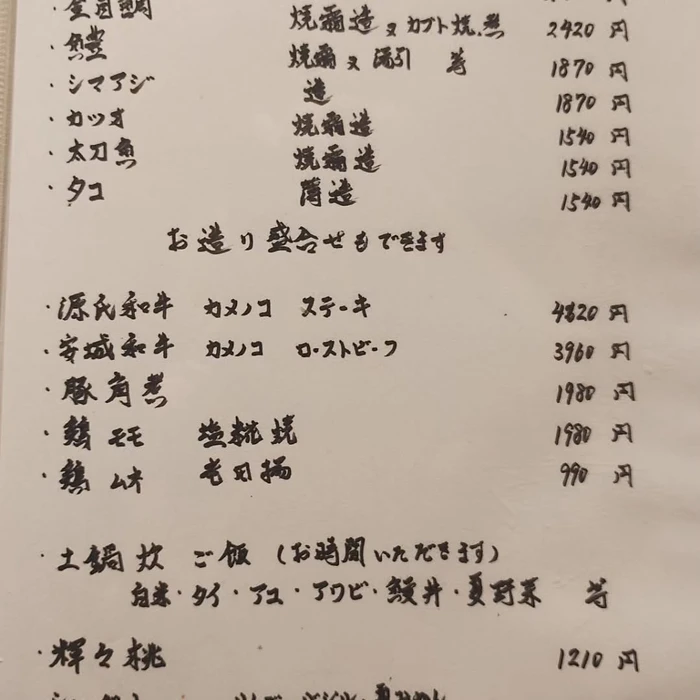 ・金目鯛 焼霜造 又 カブト焼.煮 2420 円
・鱧 焼霜 又 湯引 等 1870 円
・シマアジ 造 1870 円
・カツオ 焼霜造 1540 円
・太刀魚 焼霜造 1540 円
・タコ 薄造 1540 円
お造り盛合せもできます
・源氏和牛 カメノコ ステーキ 4820 円
・安城和牛 カメノコ ローストビーフ 3960 円
・豚角煮 1980 円
・鶏モモ 塩糀焼 1980 円
・鶏ムネ 竜田揚 990 円
・土鍋炊 ご飯 (お時間いただきます)
白米・タイ・アコ・アワビ・鰻丼・夏野菜 等
・輝々桃 1210 円